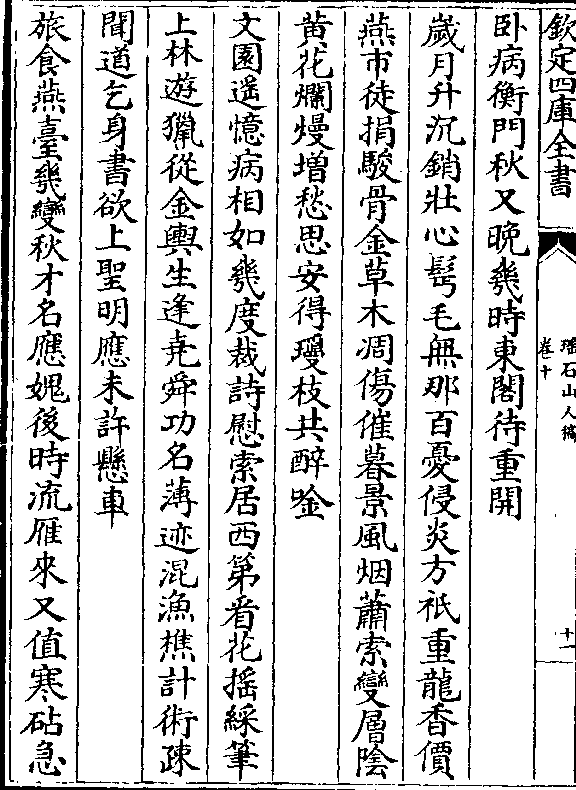 欽定四庫全書
瑤石山人稿
卷十
十一
卧病衡門秋又晚幾時東閣待重開
歲月升沉銷壯心髩毛無那百憂侵炎方祇重龍香價
燕市徒捐駿骨金草木凋傷催暮景風烟蕭索變層陰
黄花爛熳增愁思安得瓊枝共醉唫
文園遥憶病相如幾度裁詩慰索居西第看花揺綵筆
上林遊獵從金輿生逢堯舜功名薄迹混漁樵計術疎
聞道乞身書欲上聖明應未許懸車
旅食燕臺幾變秋才名應媿後時流雁來又值寒砧急